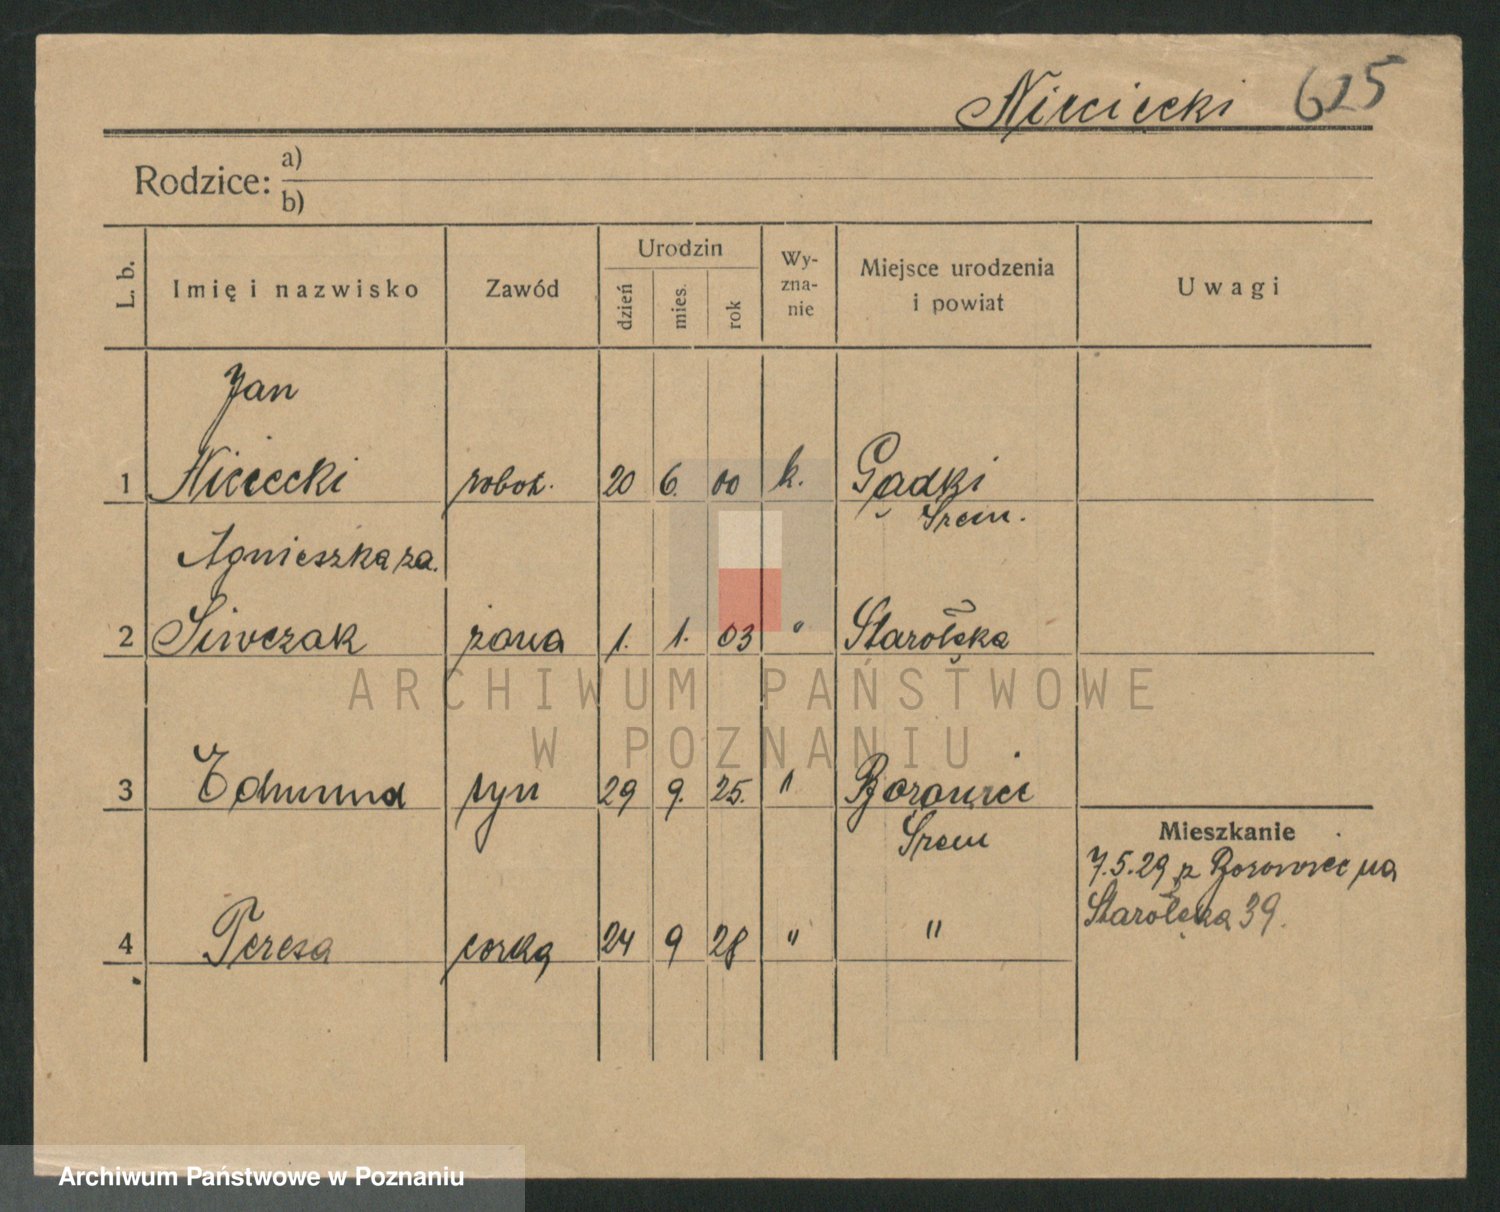 Niciecki 625
Rodzice: a)
b)
L. b. Imię i nazwisko Zawód Urodzin dzień mies. rok Wy-zna-nie Miejsce urodzenia i powiat Uwagi
Jan
1 Niciecki robot. 20 6. 00 k. Gądki
Śrem.
Agnieszka za.
2 Siwczak żona 1. 1. 03 " Starołęka
ARCHIWUM PAŃSTWOWE
W POZNANIU
3 Edmund syn 29 9. 25. " Borowiec
Śrem
Mieszkanie
7.5.29 z Borowiec na
Starołęka 39.
4 Teresa córka 24 9 28 " "
Archiwum Państwowe w Poznaniu